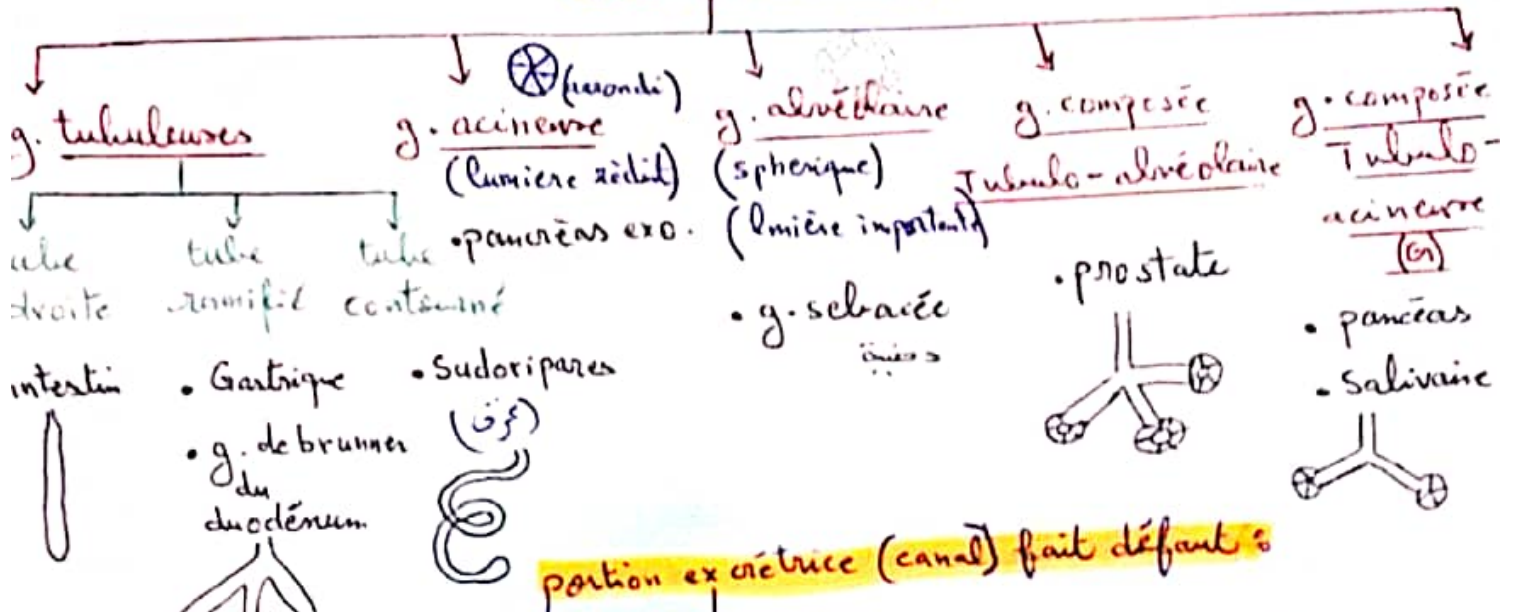 g. tubuleuses
tube droite
intestin
tube ramifié
• Gastrique
• g. de brunner
du
duodénum
tube contourné
• Sudoripares
(عرق)
g. acineuse
(arrondi)
(lumiere rèduit)
• pancrèas exo.
g. alvéolaire
(spherique)
(lmière importante)
• g. sebacée
g. composée
Tubulo-alvéolaire
• prostate
g. composée
Tubulo-
acineuse
• pancéas
• Salivaire
portion excrétrice (canal) fait défaut :